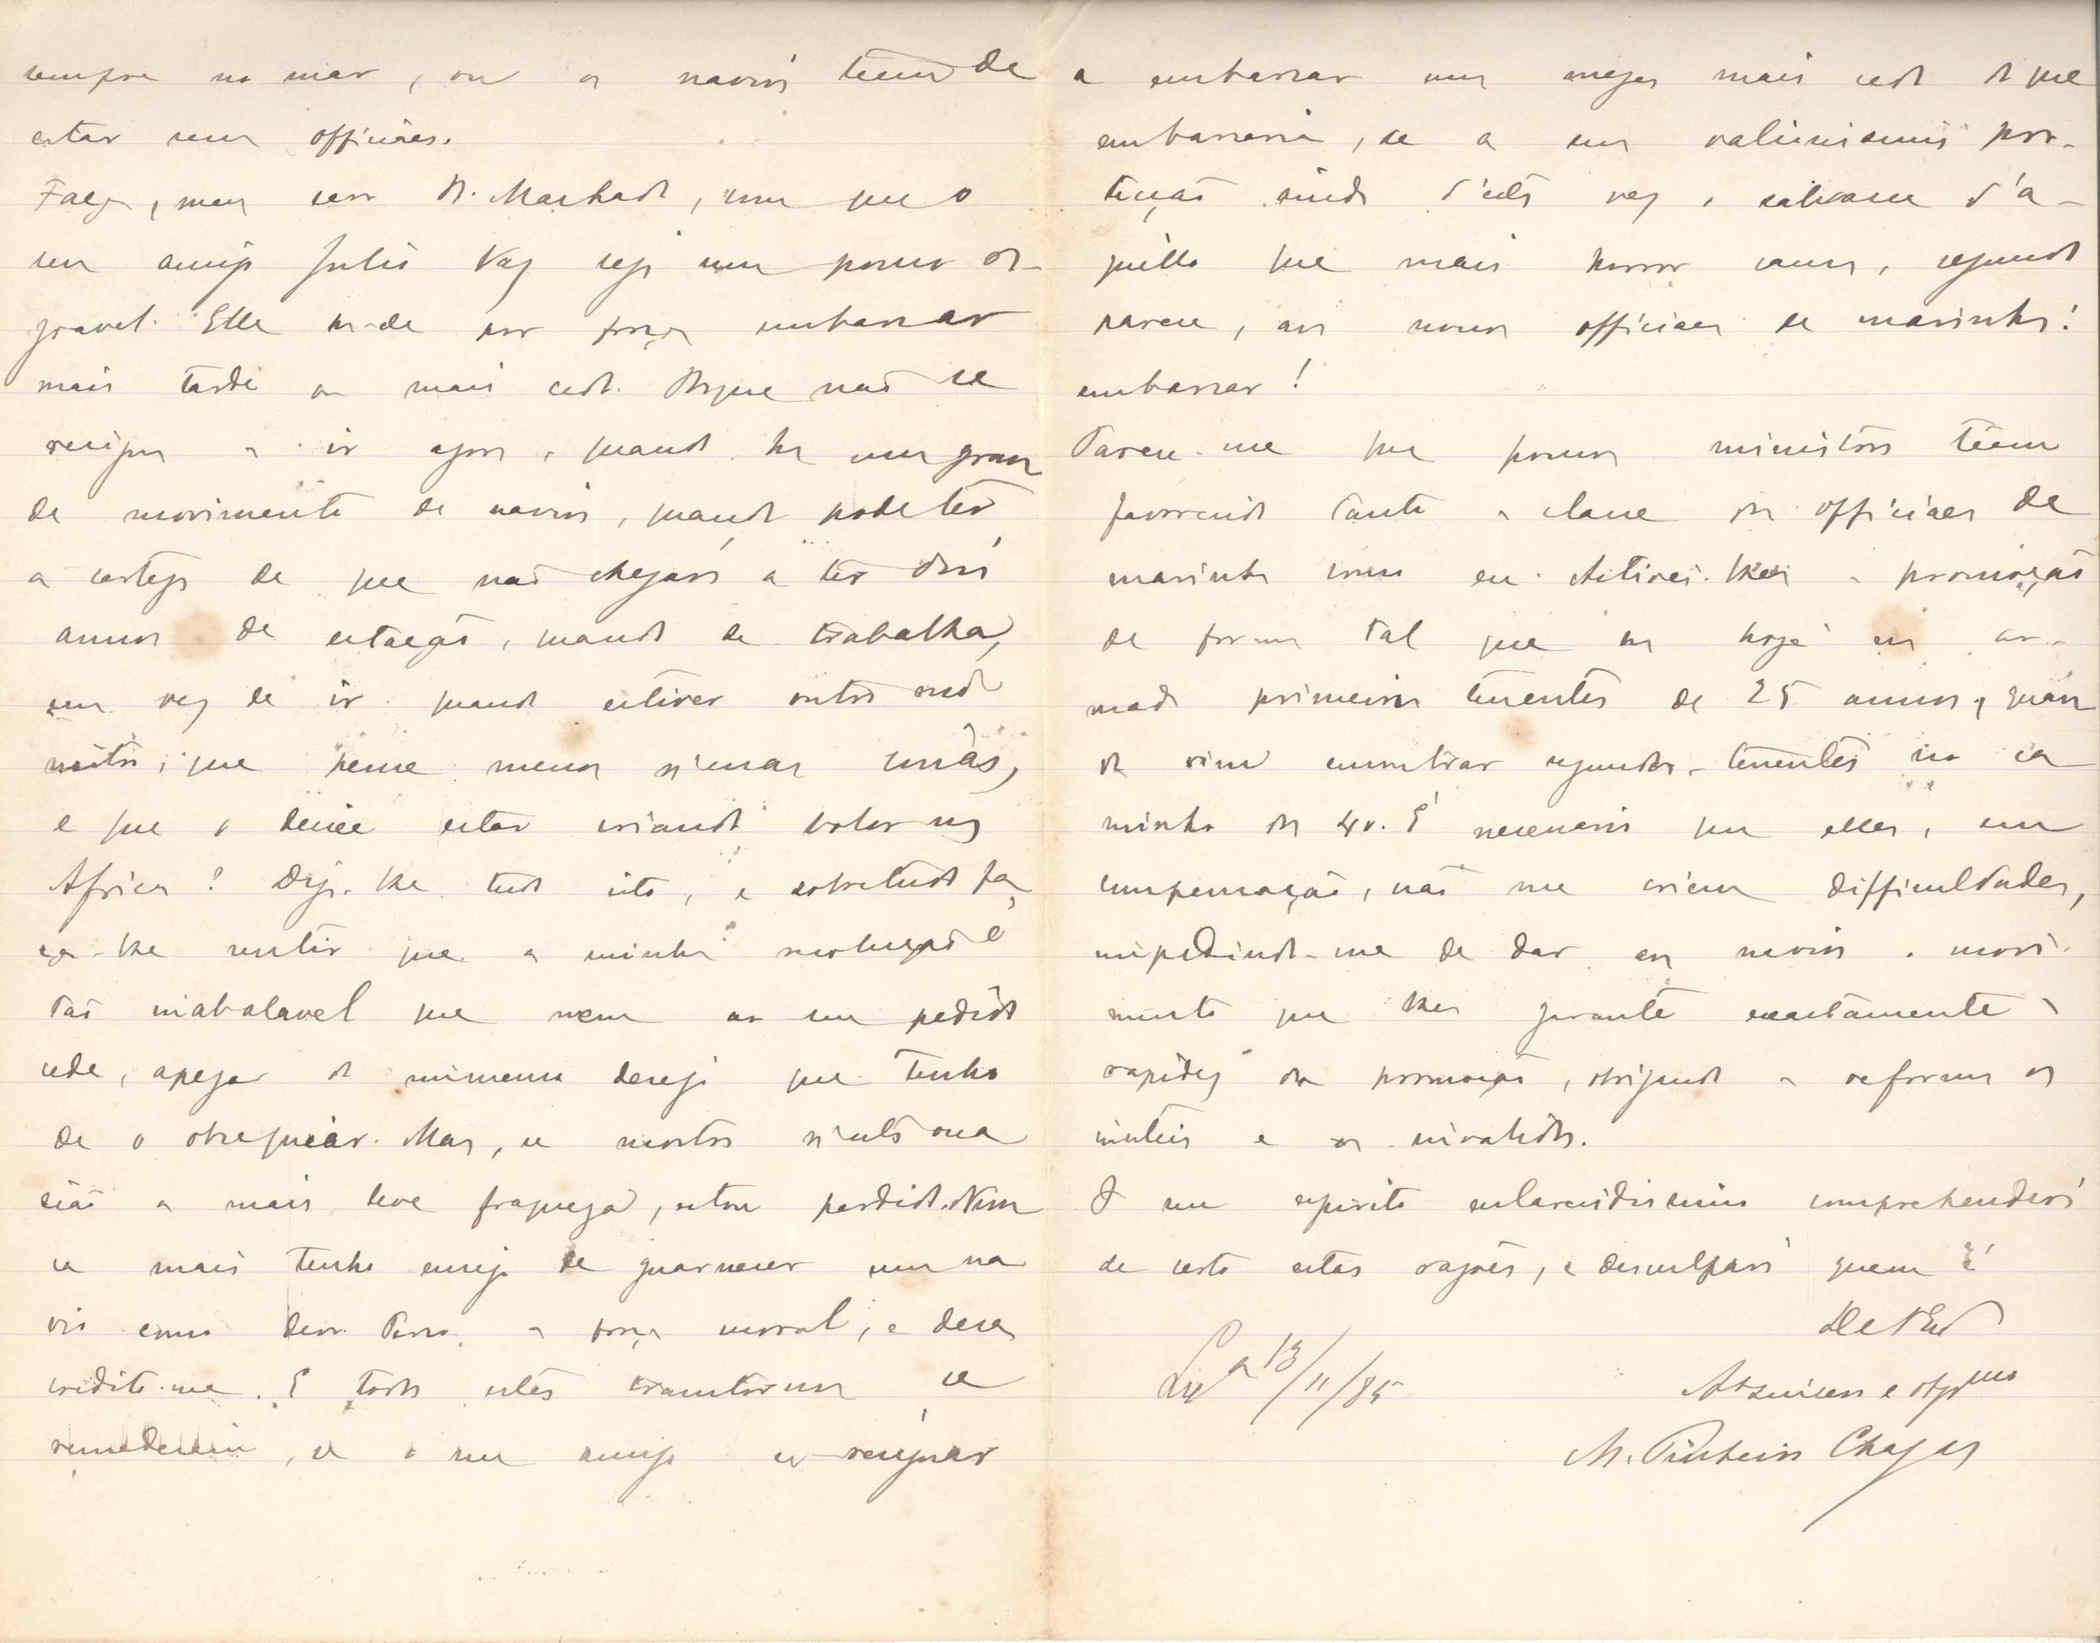 sempre no mar, ou os navios teem de
estar sem officiaes.
Faça, meu caro Dr. Machado, com que o
seu amigo Julio Vaz seja um pouco ra-
zoavel. Elle ha-de por força embarcar
mais tarde ou mais cedo. Porque não se
resigna a ir agora, quando ha um gran
de movimento de navios, quando pode ter
a certeza de que não chegará a ter dois
annos de estação, quando se trabalha,
em vez de ir quando estiver outro
ministro, que pense menos n'essas cousas,
e que o deixe estar criando bolor na
Africa? Diga-lhe tudo isto, e sobretudo fa-
ça-lhe sentir que a minha resolução é
tão inabalavel que nem ao seu pedido
cede, apezar do immenso desejo que tenho
de o obsequiar. Mas, se mostro n'esta oca
sião a mais leve fraqueza, estou perdido. Nun
ca mais tenho ensejo de guarnecer um na
vio como deve ser. Perco a força moral, e desa
credito-me. E todos estes transtornos se
remedeiam, se o seu amigo se resignar
a embarcar uns mezes mais cedo do que
embarcaria, se a sua valiosissima pro-
tecção ainda d'esta vez o salvasse d'a-
quillo que mais horror causa, segundo
parece, aos nossos officiaes de marinha:
embarcar!
Parece-me que poucos ministros teem
favorecido tanto a classe dos officiaes de
marinha como eu. Activei-lhes a promoção
de forma tal que ha hoje na ar-
mada primeiros tenentes de 25 annos, quan
do vim encontrar segundos-tenentes no ca
minho dos 40. É necessario que elles, em
compensação, não me criem difficuldades,
impedindo-me de dar aos navios o movi-
mento que lhes garante exactamente a
rapidez da promoção, obrigando a reforma os
inuteis e os invalidos.
O seu espirito esclarecidissimo comprehenderá
de certo estas razões, e desculpará quem é
De V Ex.ª
Lx.ª 13/11/85
Att.º e obg.mo
M. Pinheiro Chagas